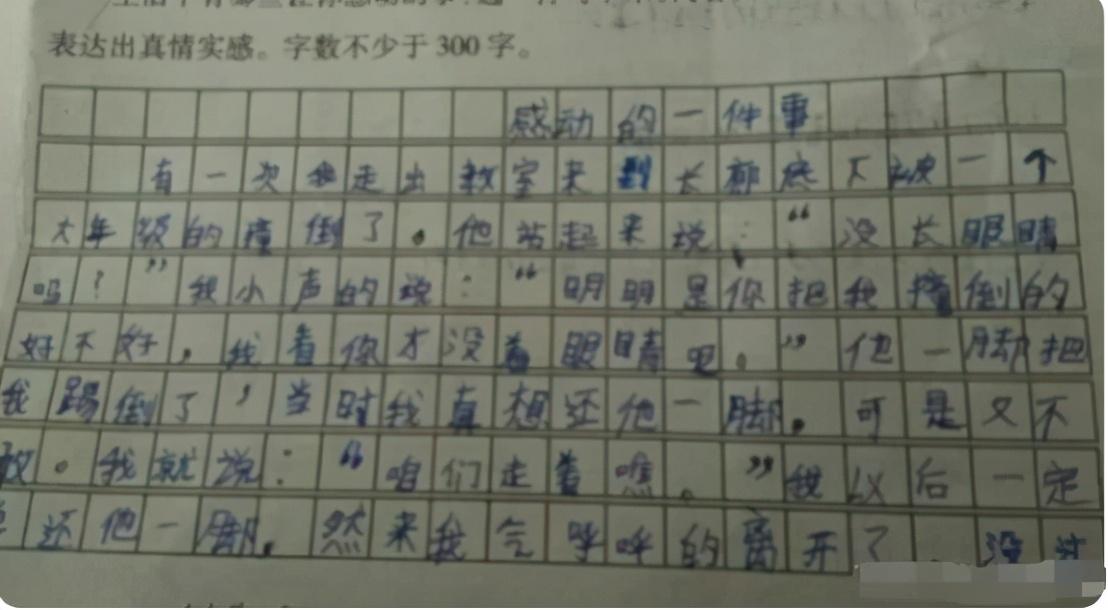 表达出真情实感。字数不少于300字。
感动的一件事
有一次我走出教室来到长廊底下被一个
大年级的撞倒了。他站起来说:“没长眼睛
吗?”我小声的说:“明明是你把我撞倒的
好不好,我看你才没着眼睛吧。”他一脚把
我踢倒了,当时我真想还他一脚。可是又不
敢。我就说:“咱们走着瞧。”我以后一定
还他一脚。然来我气呼呼的离开了。没过